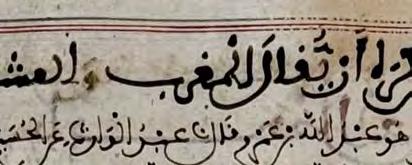 كره أن يُّقال للمغرب العشا
هو عبد الله بن عمرو قال نا عبد الوارث عن الحسين